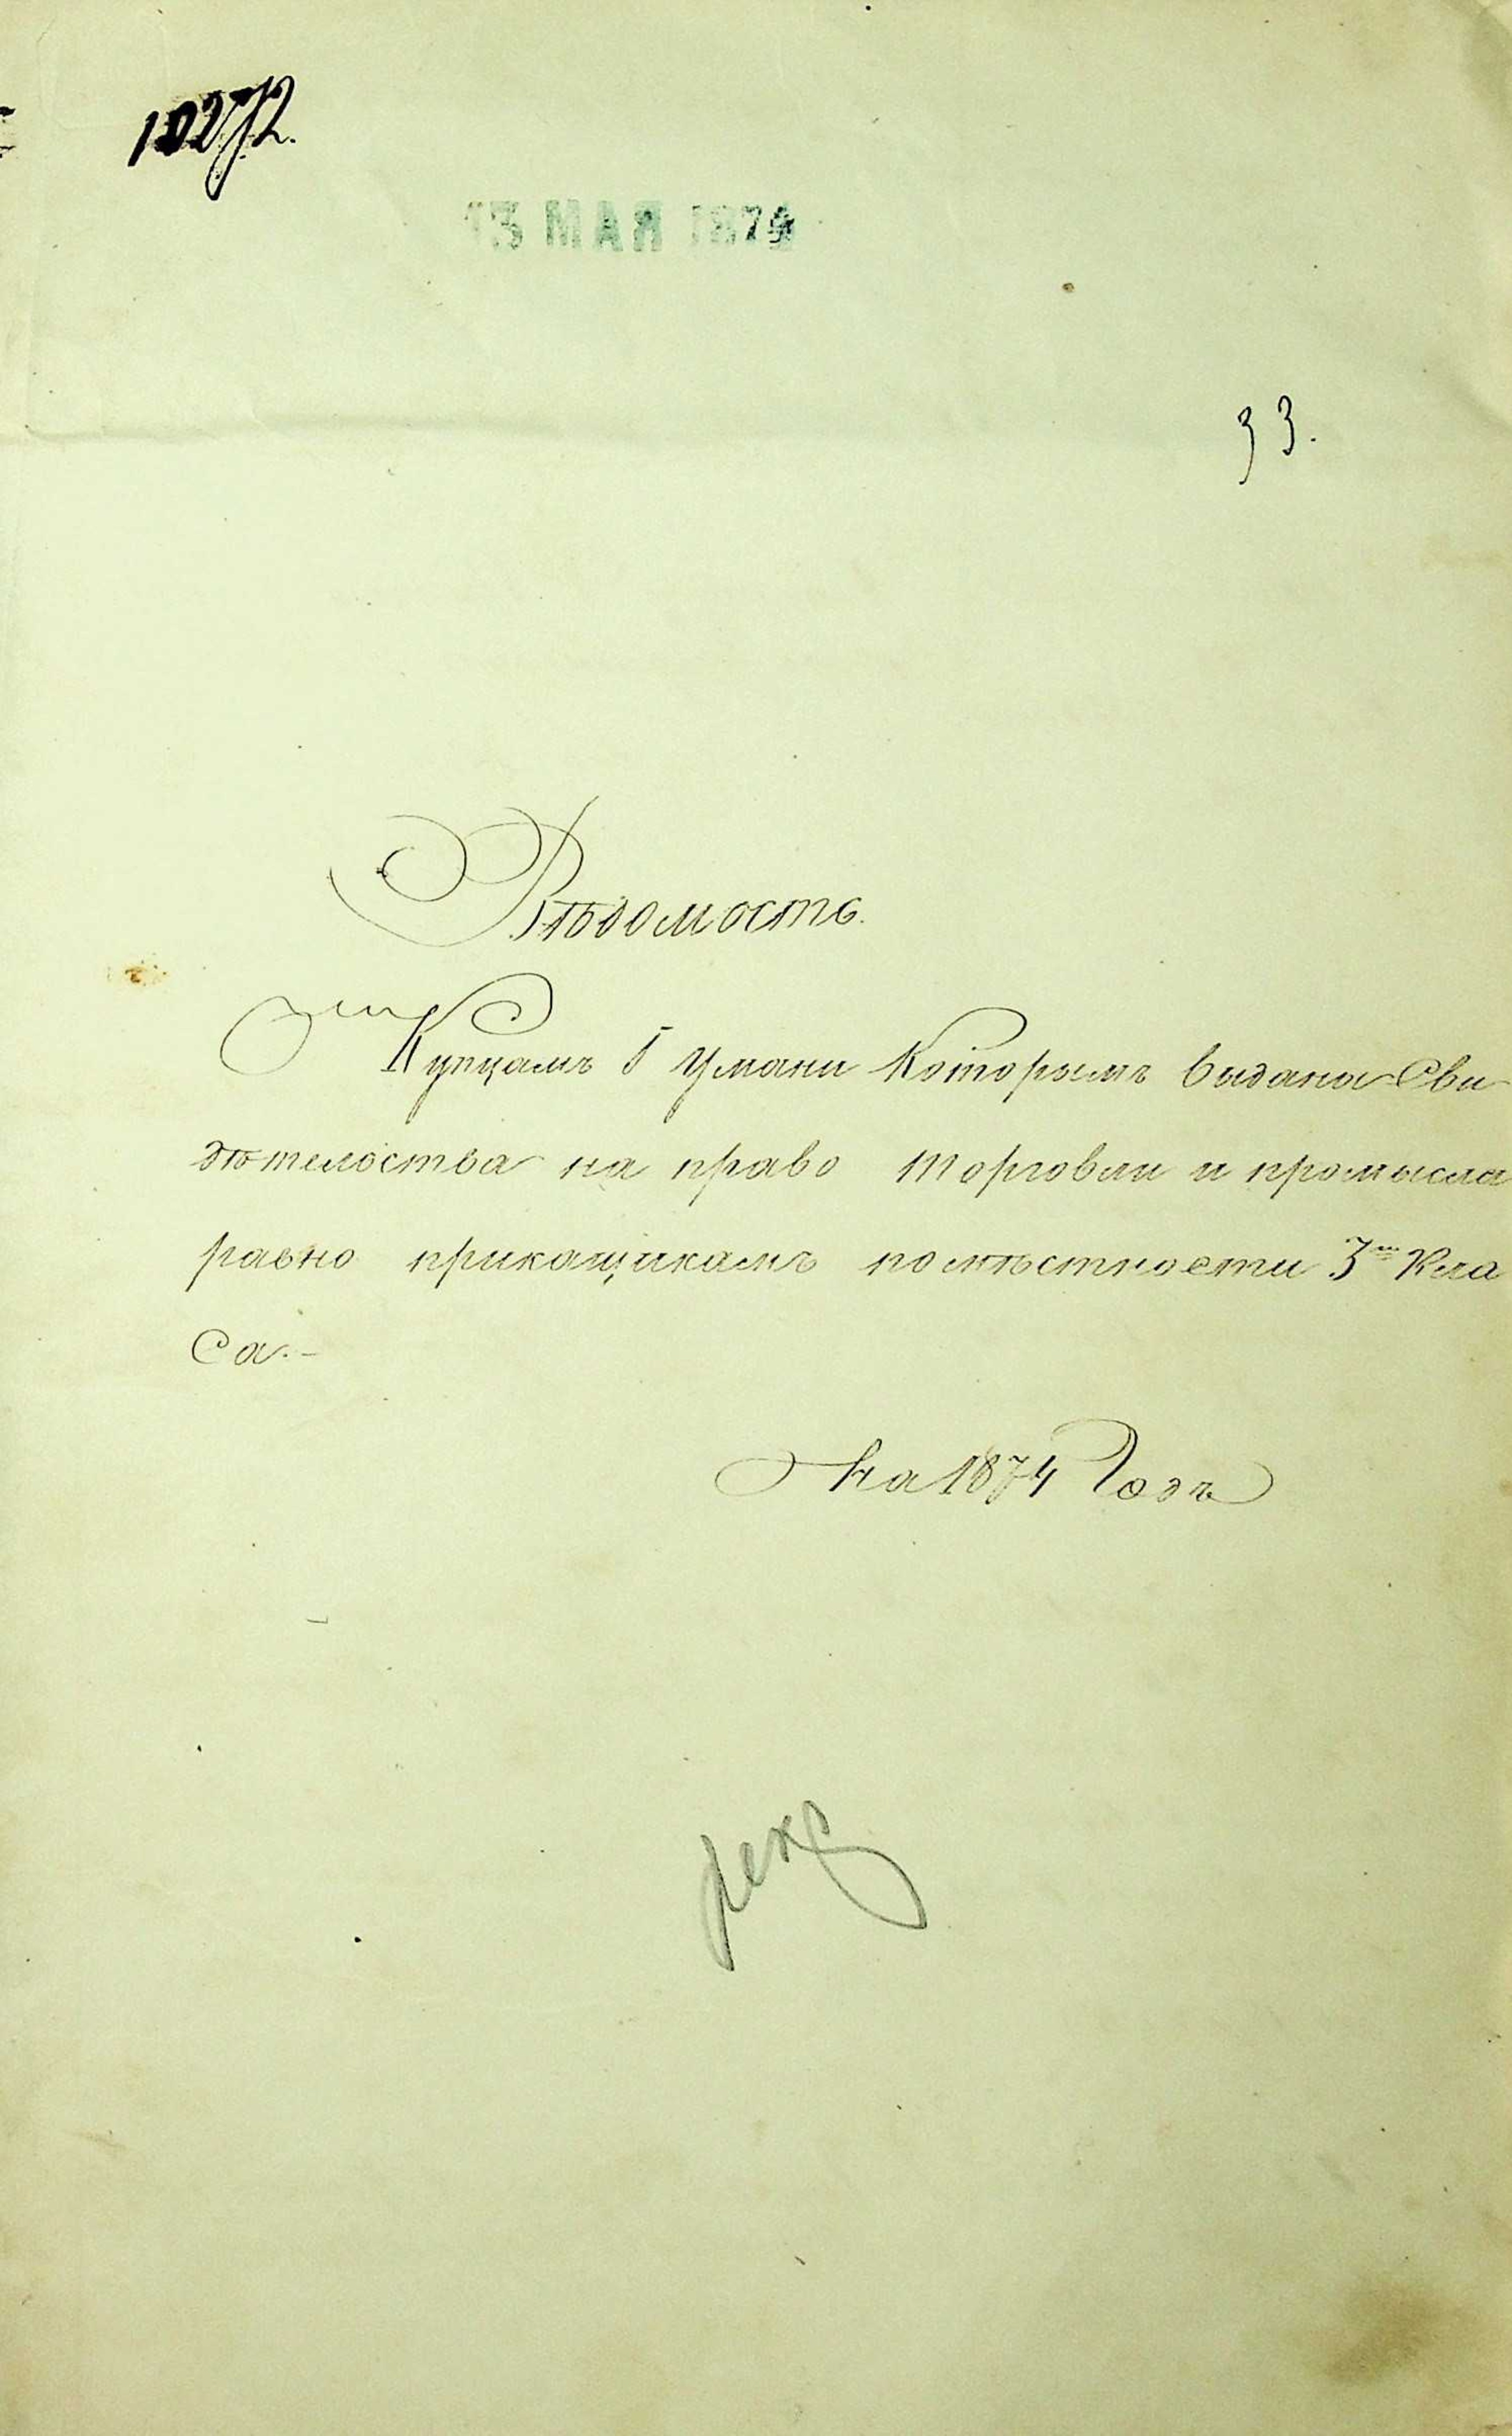 10272.
13 МАЯ 1874
33.
Вѣдомость.
Купцамъ г Умани которымъ выдана Сви
дѣтелства на право торговли и промысла
равно прикащикамъ по мѣстности 3го Кла
са.-
На 1874 Годъ